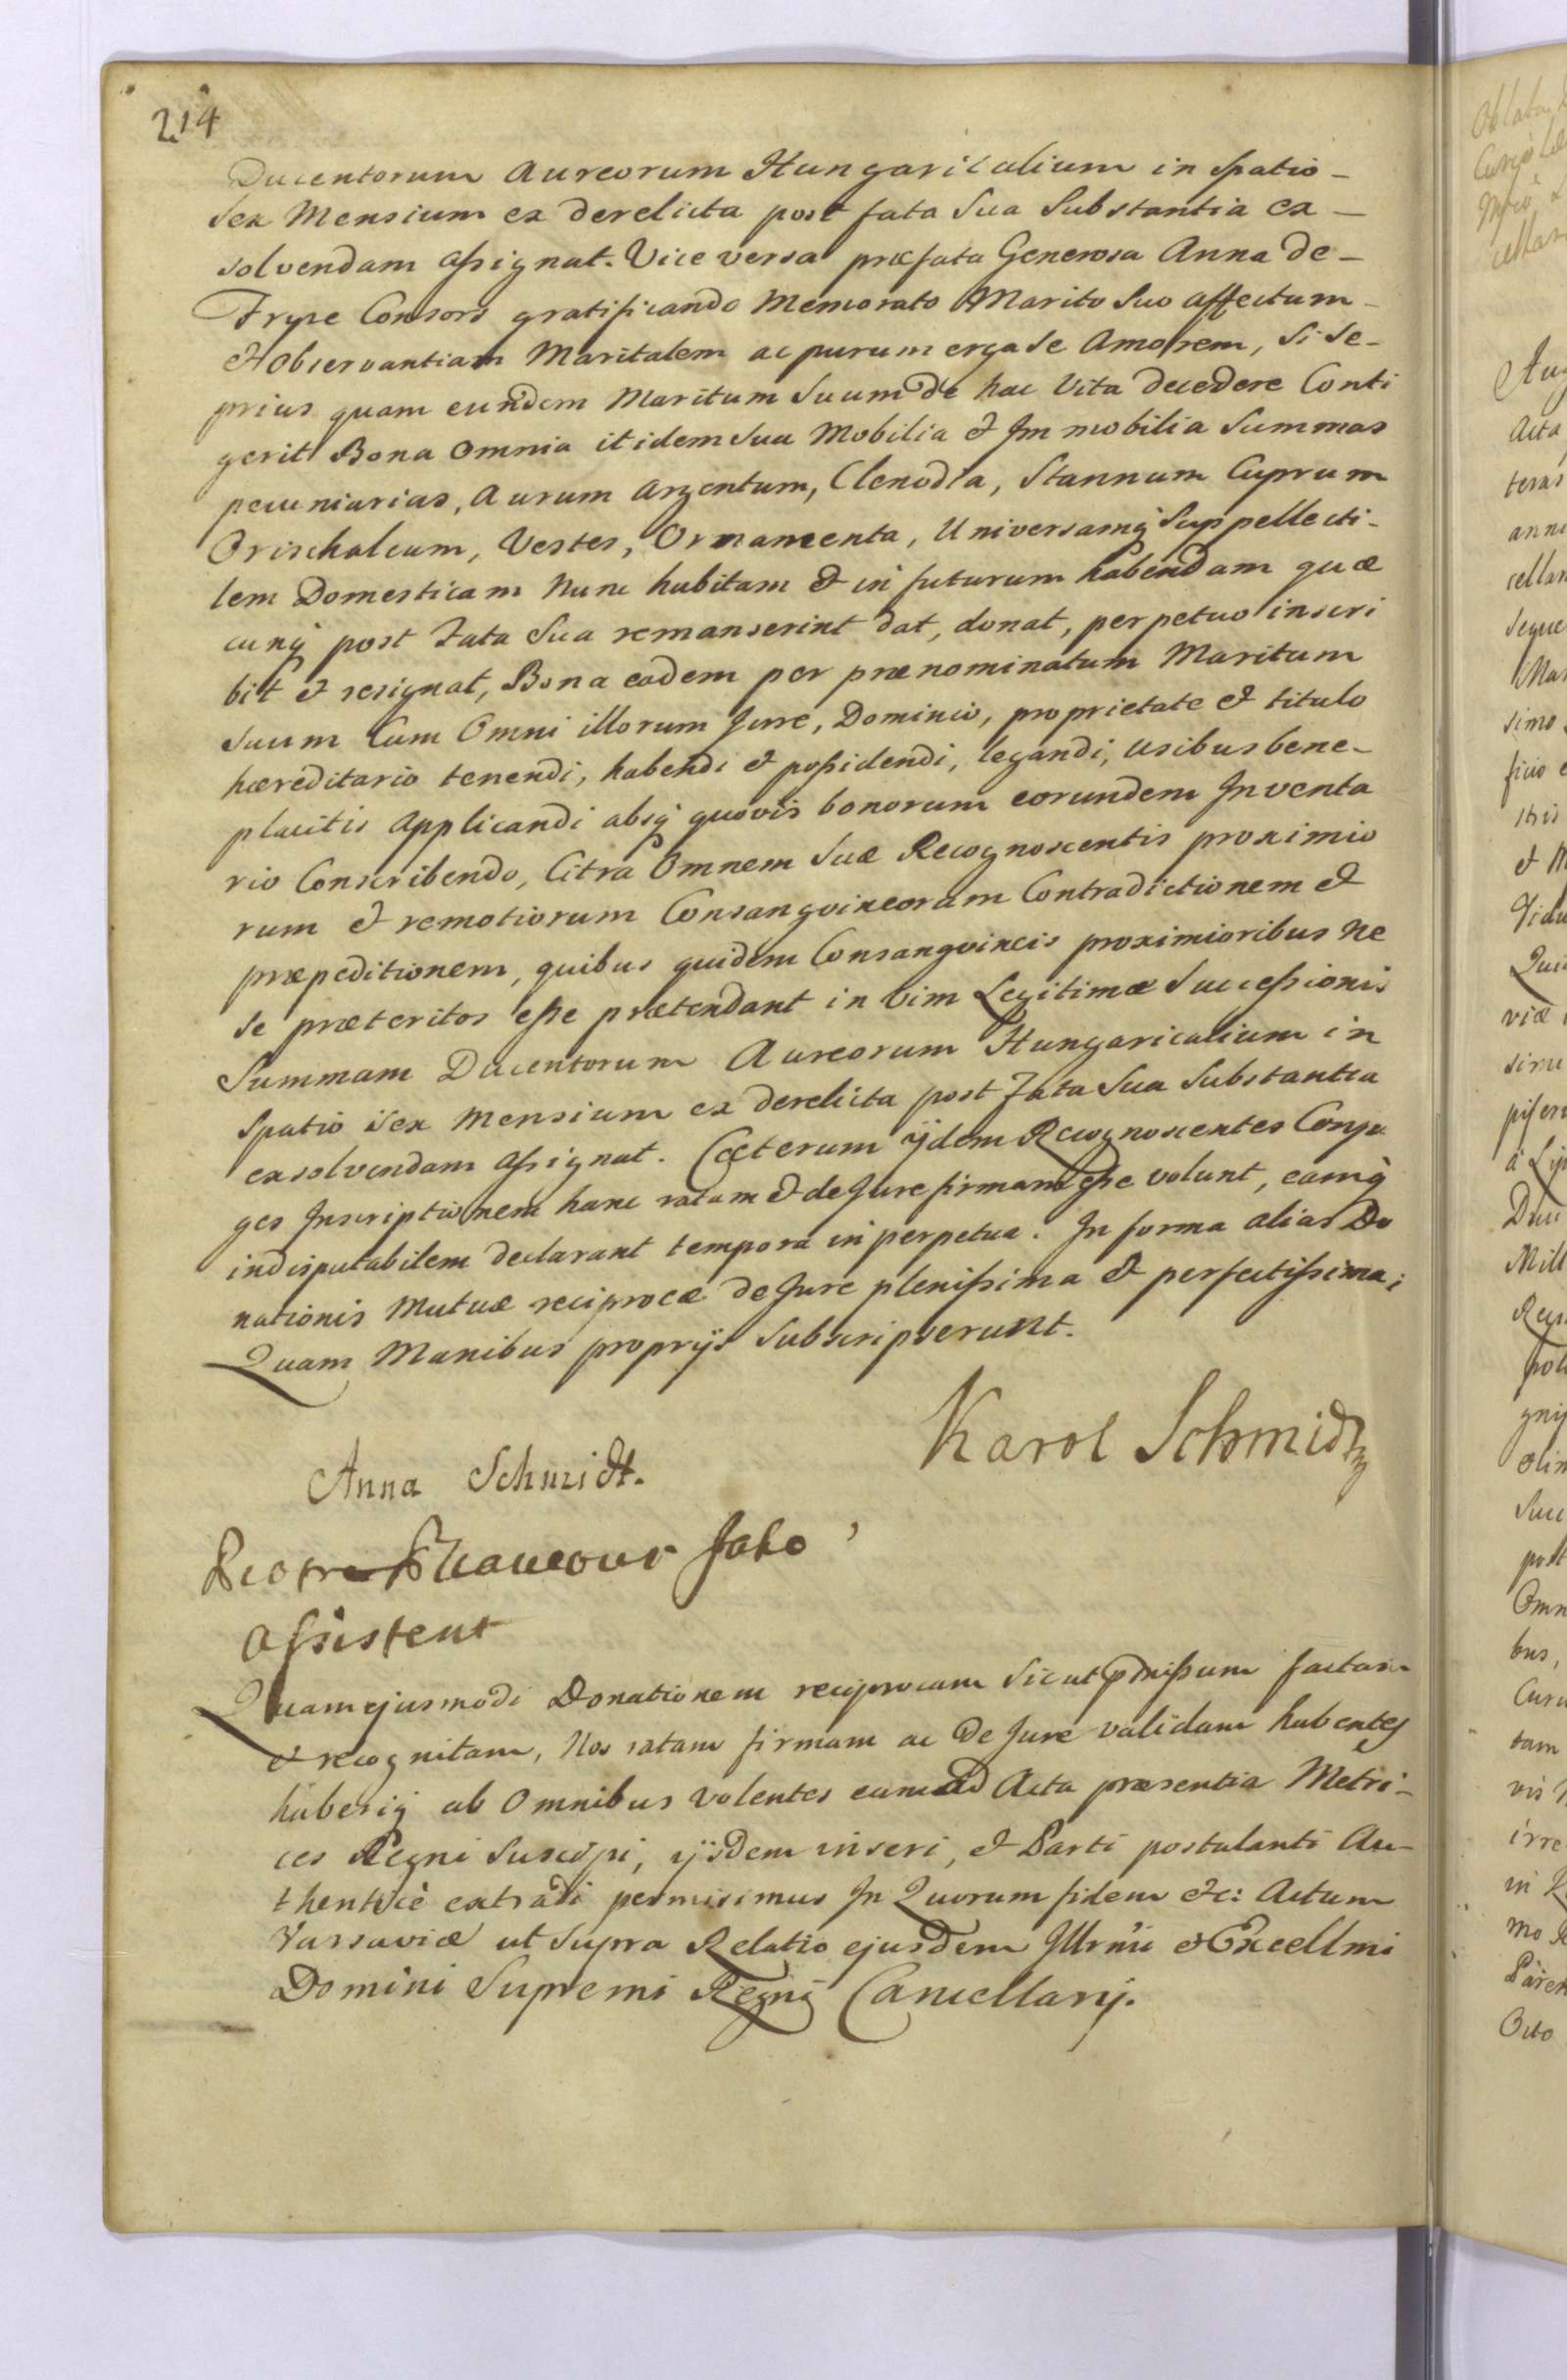 214
Ducentorum Aureorum Hungaricalium in Spatio-
Sex Mensium ex derelicta post fata Sua Substantia ex-
solvendam assignat. Vice versa præfata Generosa Anna de-
Frype Consors gratificando Memorato Marito Suo affectum-
et Observantiam Maritalem ac purum erga Se Amorem, Si Se-
prius quam eundem Maritum Suum de hac Vita decedere Conti
gerit Bona Omnia itidem Sua Mobilia et Immobilia Summas
pecuniarias, Aurum Argentum, Clenodia, Stannum Cuprum
Orischalcum, Vestes, Ornamenta, Universamq Suppellecti-
lem Domesticam Nunc habitam et in futurum habendam quæ
cunq post Fata Sua remanserint dat, donat, perpetuo inscri
bit et resignat, Bona eadem per prænominatum Maritum
Suum Cum Omni illorum Jure, Dominio, proprietate et titulo
hæreditario tenendi, habendi et possidendi, legandi, usibus bene-
placitis Applicandi absq quovis bonorum eorundem Inventa
rio Conscribendo, Citra Omnem Suæ Recognoscentis proximio
rum et remotiorum Consangvineorum Contradictionem et
præpeditionem, quibus quidem Consangvineis proximioribus Ne
Se præteritos esse prætendant in Vim Legitimæ Successionis
Summam Ducentorum Aureorum Hungaricalium in
Spatio Sex Mensium ex derelicta post Fata Sua Substantia
exsolvendam assignat. Cæterum ijdem Recognoscentes Conju
ges Inscriptionem hanc ratam et de Jure firmam esse volunt, eamq
indisputabilem declarant tempora in perpetua. In forma alias Do
nationis Mutuæ reciprocæ de Jure plenissima et perfectissima;
Quam Manibus proprijs Subscripserunt.
Karol Schmidt
Anna Schmidt.
Piotr Jako
Assistent
Quam ejusmodi Donationem reciprocam Sicut præmissum factam
et recognitam, Nos ratam firmam ac de Jure validam habentes
haberiq ab Omnibus Volentes eam ad Acta præsentia Metri-
ces Regni Suscipi, ijsdem inseri, et Parti postulanti Au-
thenticè extradi permisimus In Quorum fidem etc: Actum
Varsaviæ ut Supra Relatio ejusdem Illrmi et Excellmi
Domini Supremi Regni Cancellarij.